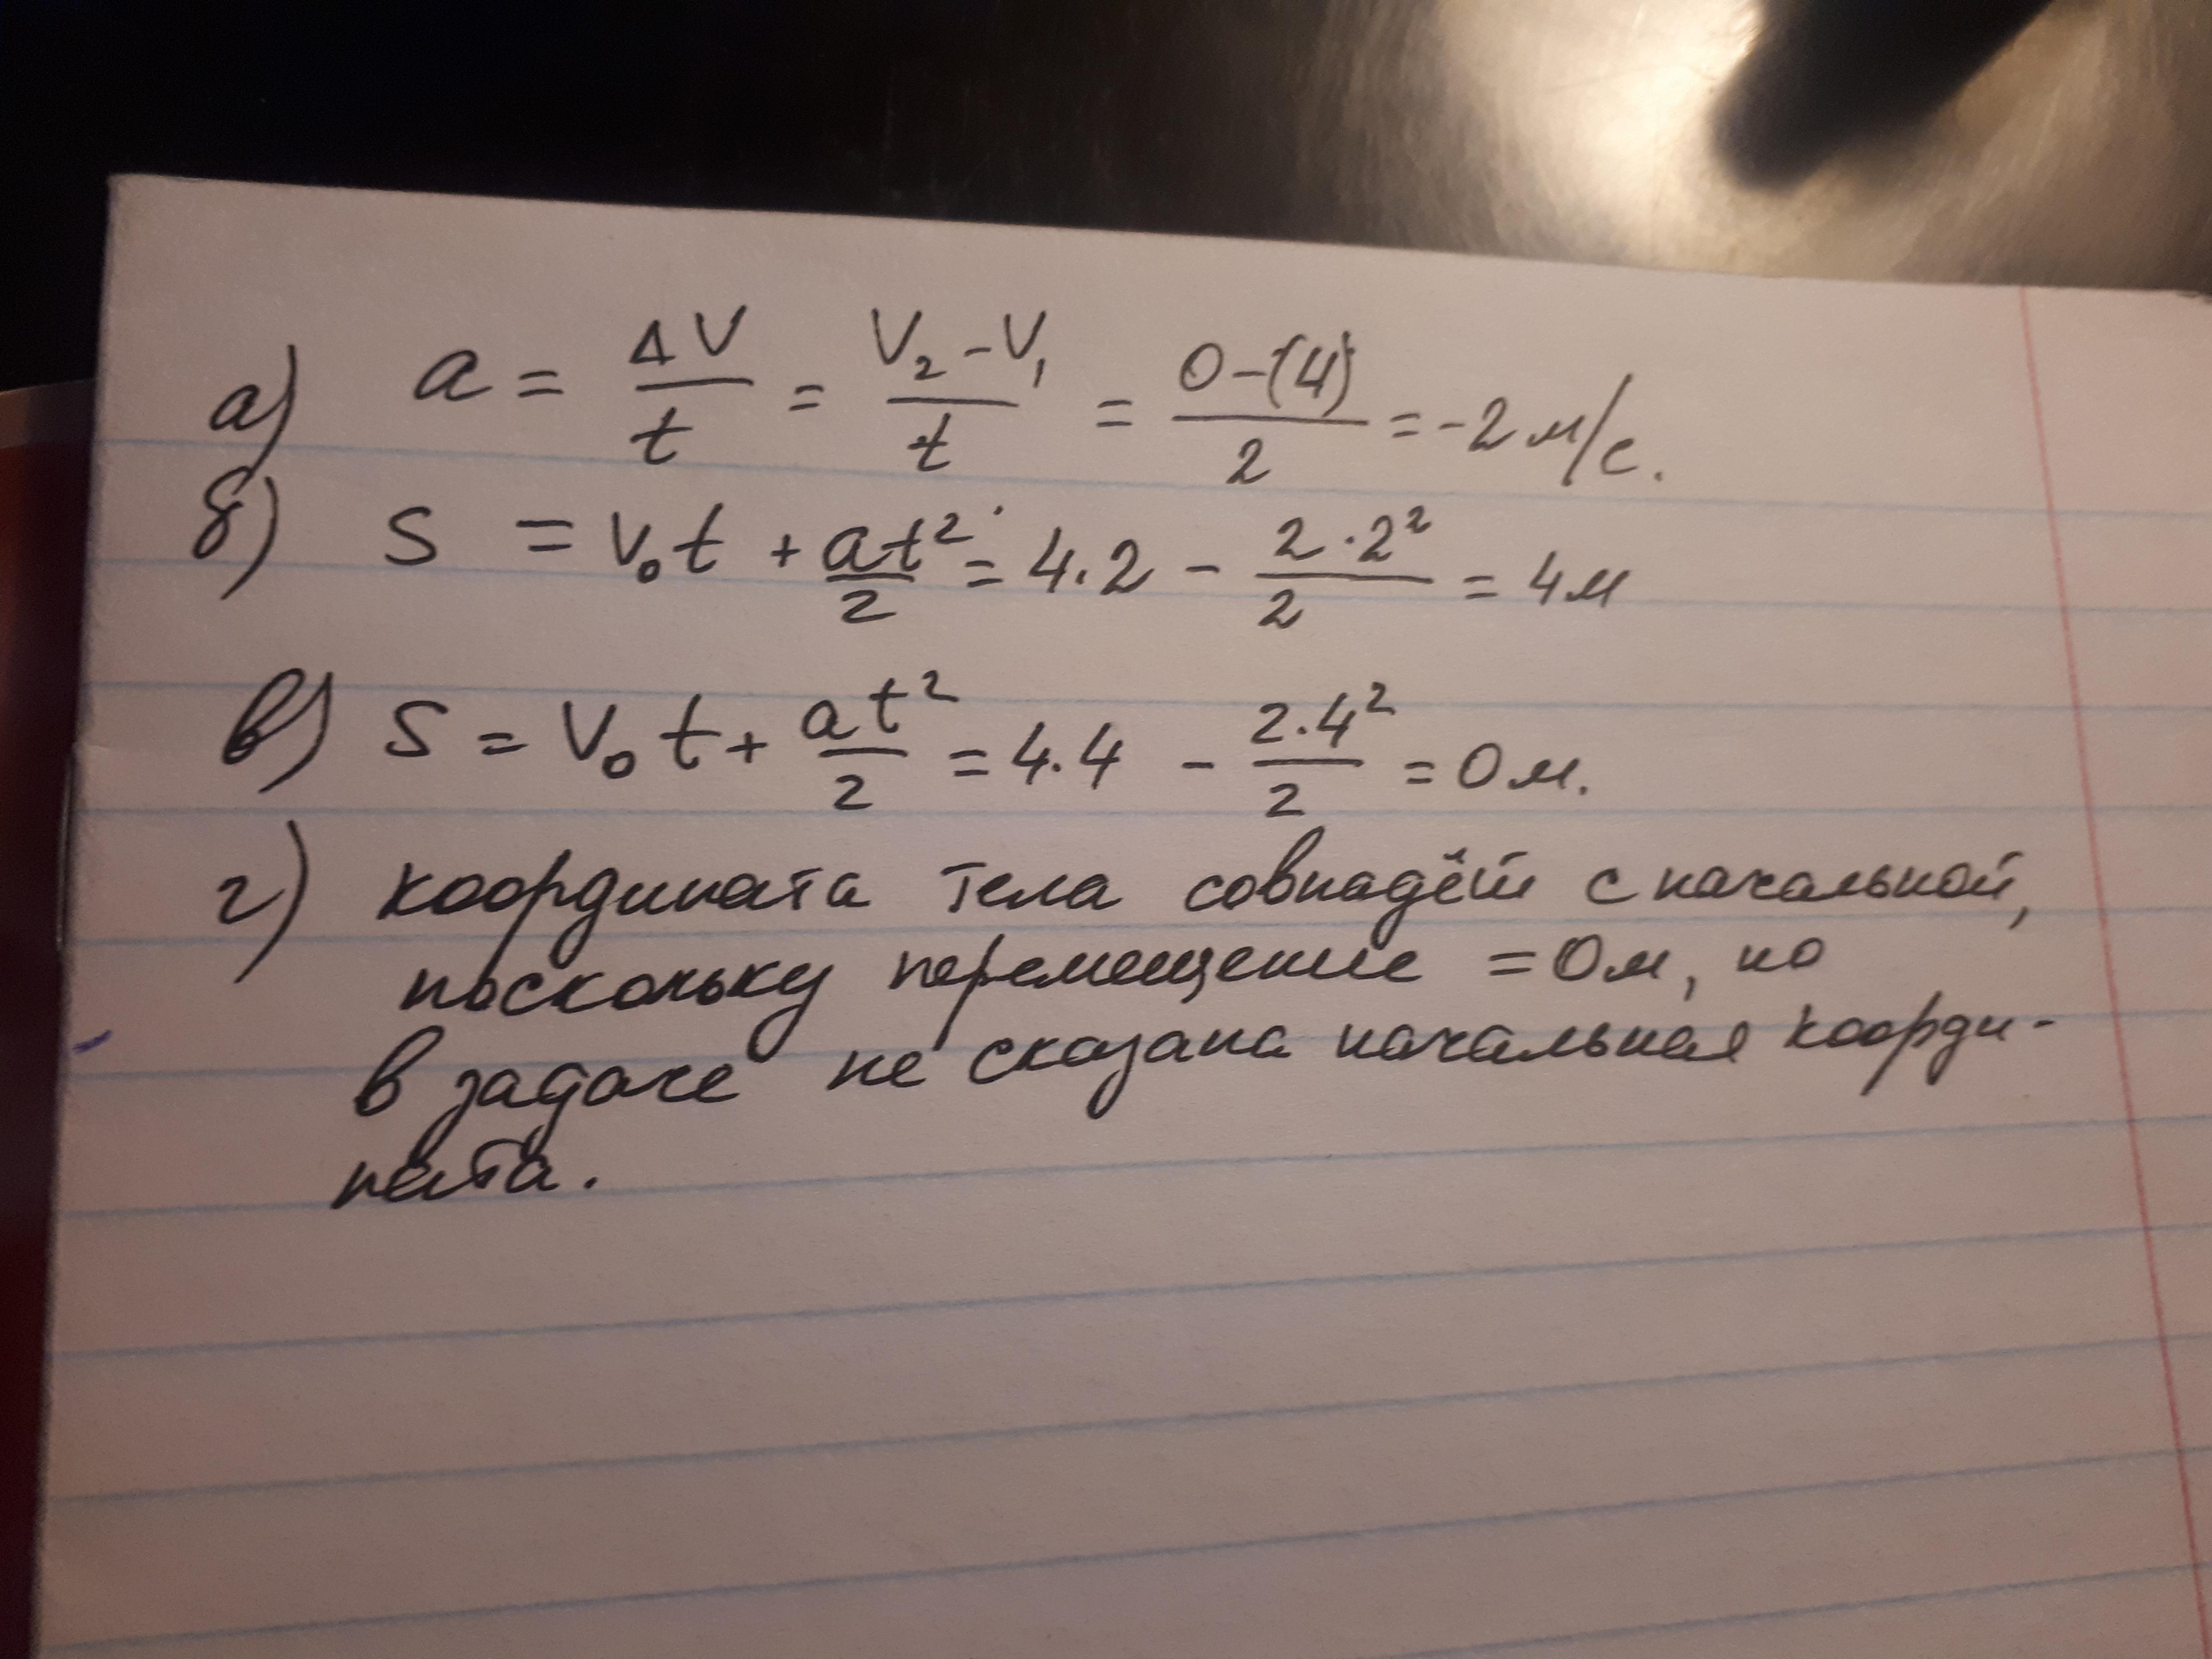 а) a = ΔV/t = V₂-V₁/t = 0-(4)/2 = -2 м/с.
б) S = V₀t + at²/2 = 4.2 - 2·2²/2 = 4м
в) S = V₀t + at²/2 = 4.4 - 2.4²/2 = 0м.
г) координата тела совпадёт с начальной,
поскольку перемещение = 0м, но
в задаче не сказана начальная коорди-
ната.